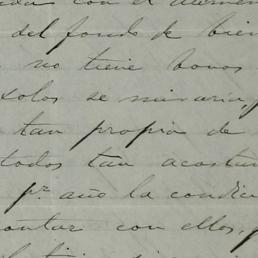 con el aumen
del fondo de bien
no tiene bonos
solos se miraria,
tan propia de
todos tan acostum
pr. año la condic
contar con ellos,